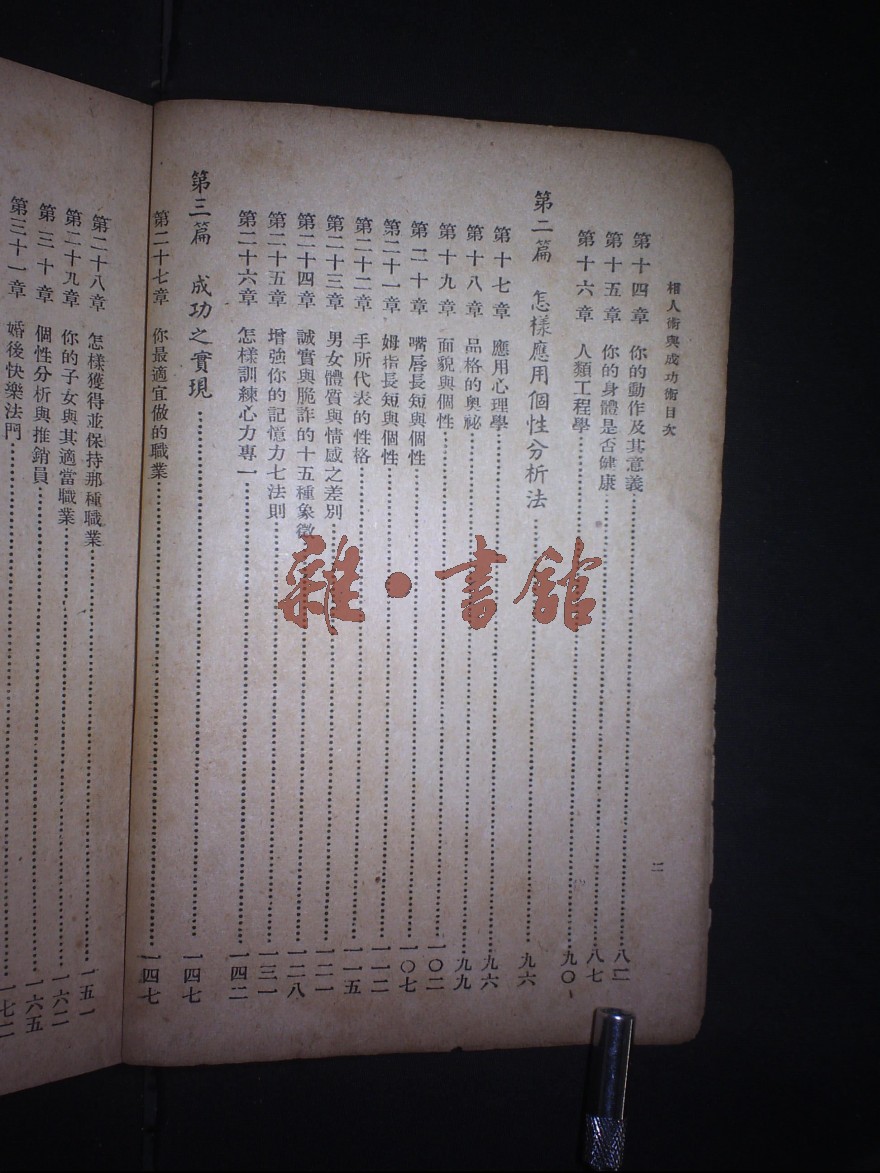 相人術與成功術目次
二
第十四章 你的動作及其意義 八二
第十五章 你的身體是否健康 八七
第十六章 人類工程學 九〇
第二篇 怎樣應用個性分析法 九六
第十七章 應用心理學 九六
第十八章 品格的奧祕 九九
第十九章 面貌與個性 一〇二
第二十章 嘴唇長短與個性 一〇七
第二十一章 姆指長短與個性 一一二
第二十二章 手所代表的性格 一一五
第二十三章 男女體質與情感之差別 一二一
第二十四章 誠實與脆詐的十五種象徵 一二八
第二十五章 增強你的記憶力七法則 一三一
第二十六章 怎樣訓練心力專一 一四二
第三篇 成功之實現 一四七
第二十七章 你最適宜做的職業 一四七
第二十八章 怎樣獲得並保持那種職業 一五一
第二十九章 你的子女與其適當職業 一六二
第三十章 個性分析與推銷員 一六五
第三十一章 婚後快樂法門 一七二
雜·書館